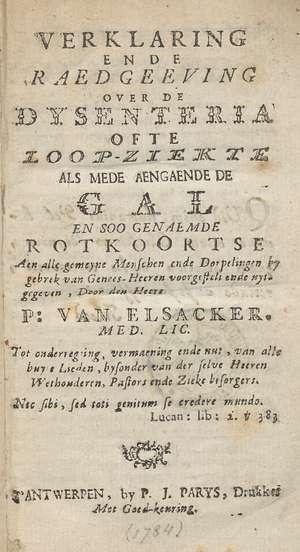 VERKLARING
ENDE
RAEDGEEVING
OVER DE
DYSENTERIA
OFTE
LOOP-ZIEKTE
ALS MEDE AENGAENDE DE
GAL
EN SOO GENAEMDE
ROTKOORTSE
Aen alle gemeyne Menschen ende Dorpelingen by
gebrek van Genees-Heeren voorgestelt ende uyt-
gegeven, Door den Heere
P: VAN ELSACKER.
MED. LIC.
Tot onderregting, vermaening ende nut, van alle
buyte Lieden, bysonder van der selve Heeren
Wethouderen, Pastors ende Zieke besorgers.
Nec sibi, sed toti genitum se credere mundo.
Lucan: lib: 2. v 383
T'ANTWERPEN, by P. J. PARYS, Drukker
Met Goed-keuring.
(1784)